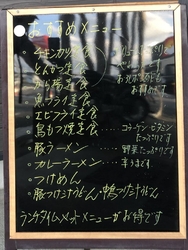 おすすめメニュー
○チキンカツ定食
○とんかつ定食
○から揚定食
○魚フライ定食
○エビフライ定食
○鳥もつ焼定食……コラーゲン・ビタミン たっぷりです
○豚ラーメン……野菜たっぷりです
○カレーラーメン……辛うまです
○つけめん
○豚つけ汁うどん・鴨つけ汁うどん
ランチタイムメットメニューがお得です